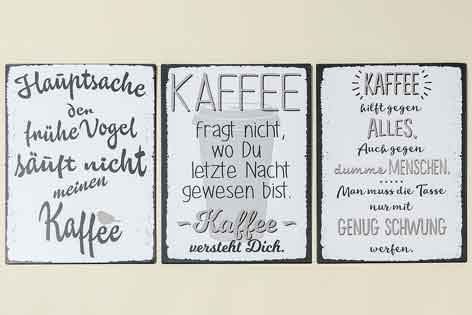 Hauptsache
den
frühe Vogel
säuft nicht
meinen
Kaffee
KAFFEE
fragt nicht,
wo Du
letzte Nacht
gewesen bist.
~Kaffee~
versteht Dich.
KAFFEE
hilft gegen
ALLES.
Auch gegen
dumme MENSCHEN.
Man muss die Tasse
nur mit
GENUG SCHWUNG
werfen.